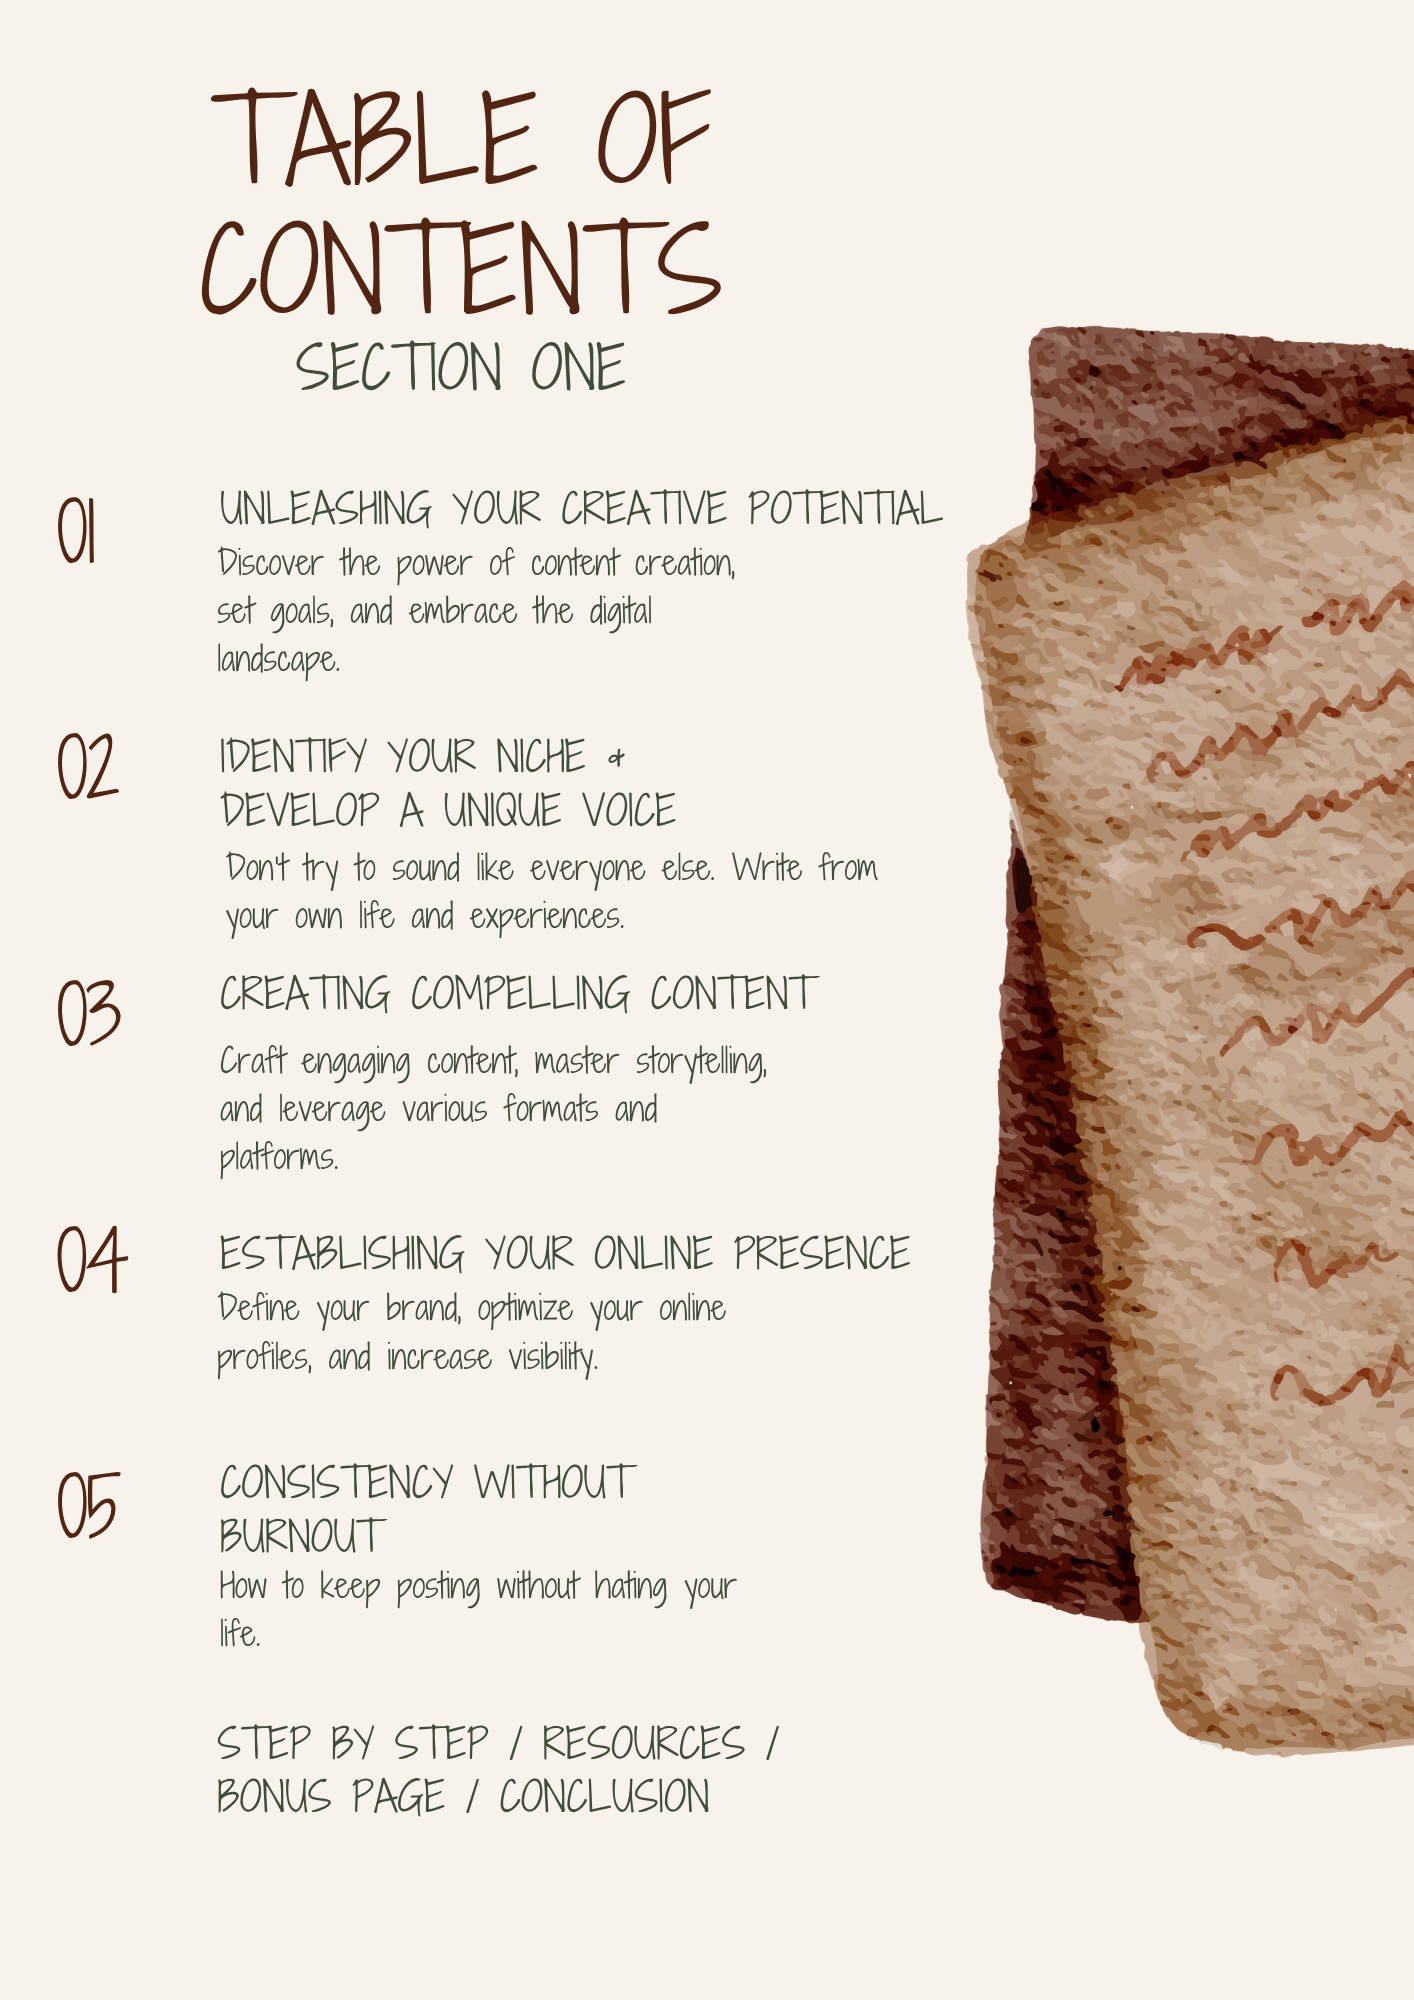 TABLE OF
CONTENTS
SECTION ONE
01
UNLEASHING YOUR CREATIVE POTENTIAL
Discover the power of content creation,
set goals, and embrace the digital
landscape.
02
IDENTIFY YOUR NICHE &
DEVELOP A UNIQUE VOICE
Don't try to sound like everyone else. Write from
your own life and experiences.
03
CREATING COMPELLING CONTENT
Craft engaging content, master storytelling,
and leverage various formats and
platforms.
04
ESTABLISHING YOUR ONLINE PRESENCE
Define your brand, optimize your online
profiles, and increase visibility.
05
CONSISTENCY WITHOUT
BURNOUT
How to keep posting without hating your
life.
STEP BY STEP / RESOURCES /
BONUS PAGE / CONCLUSION